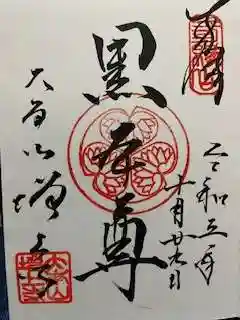 奉拝
令和五年
十月廿九日
黒本尊
大本山増上寺